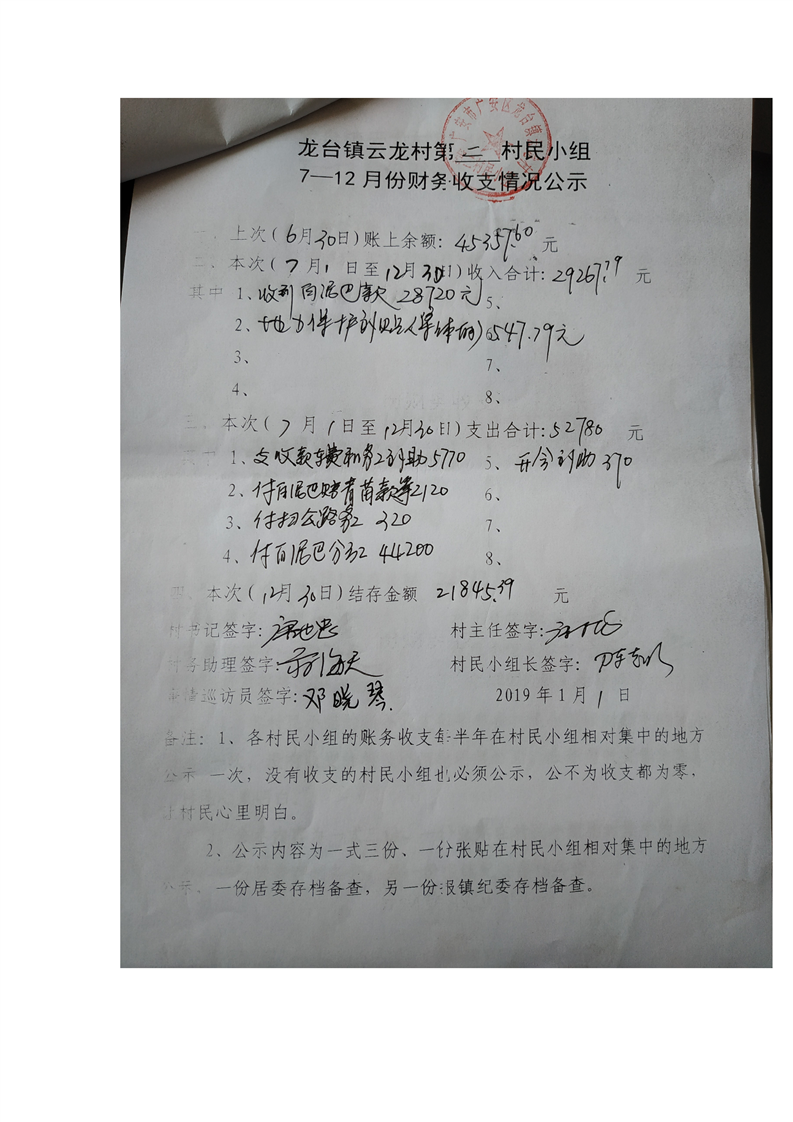 龙台镇云龙村第二村民小组
7—12月份财务收支情况公示
一、上次(6月30日)账上余额:45357.60元
二、本次(7月1日至12月30日)收入合计:29267.79元
其中 1、收到白泥巴款28720元 5、
2、地力保护补贴(集体的)547.79元 6、
3、 7、
4、 8、
三、本次(7月1日至12月30日)支出合计:52780元
1、交收款车费和务工补助5770 5、开会补助370
2、付白泥巴赔青苗款等2120 6、
3、付扫公路务工 320 7、
4、付白泥巴分红 44200 8、
四、本次(12月30日)结存金额 21845.39 元
村书记签字: 村主任签字:
村务助理签字: 村民小组长签字:
巡访员签字:邓晓琴 2019年1月1日
备注:1、各村民小组的账务收支每半年在村民小组相对集中的地方
公示一次,没有收支的村民小组也必须公示,公不为收支都为零,
让村民心里明白。
2、公示内容为一式三份、一份张贴在村民小组相对集中的地方
公示,一份居委存档备查,另一份报镇纪委存档备查。